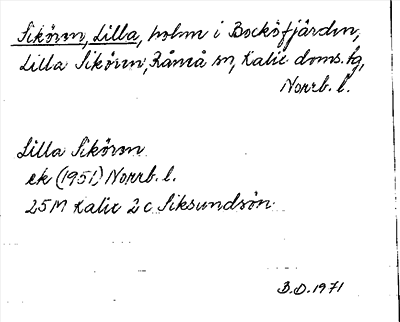 Sikören, Lilla, holm i Bocköfjärden,
Lilla Sikören, Råneå sn, Kalix doms. tg,
Norrb. l.
Lilla Sikören
ek (1951) Norrb. l.
25M Kalix 2c Siksundsön
B.D. 1971